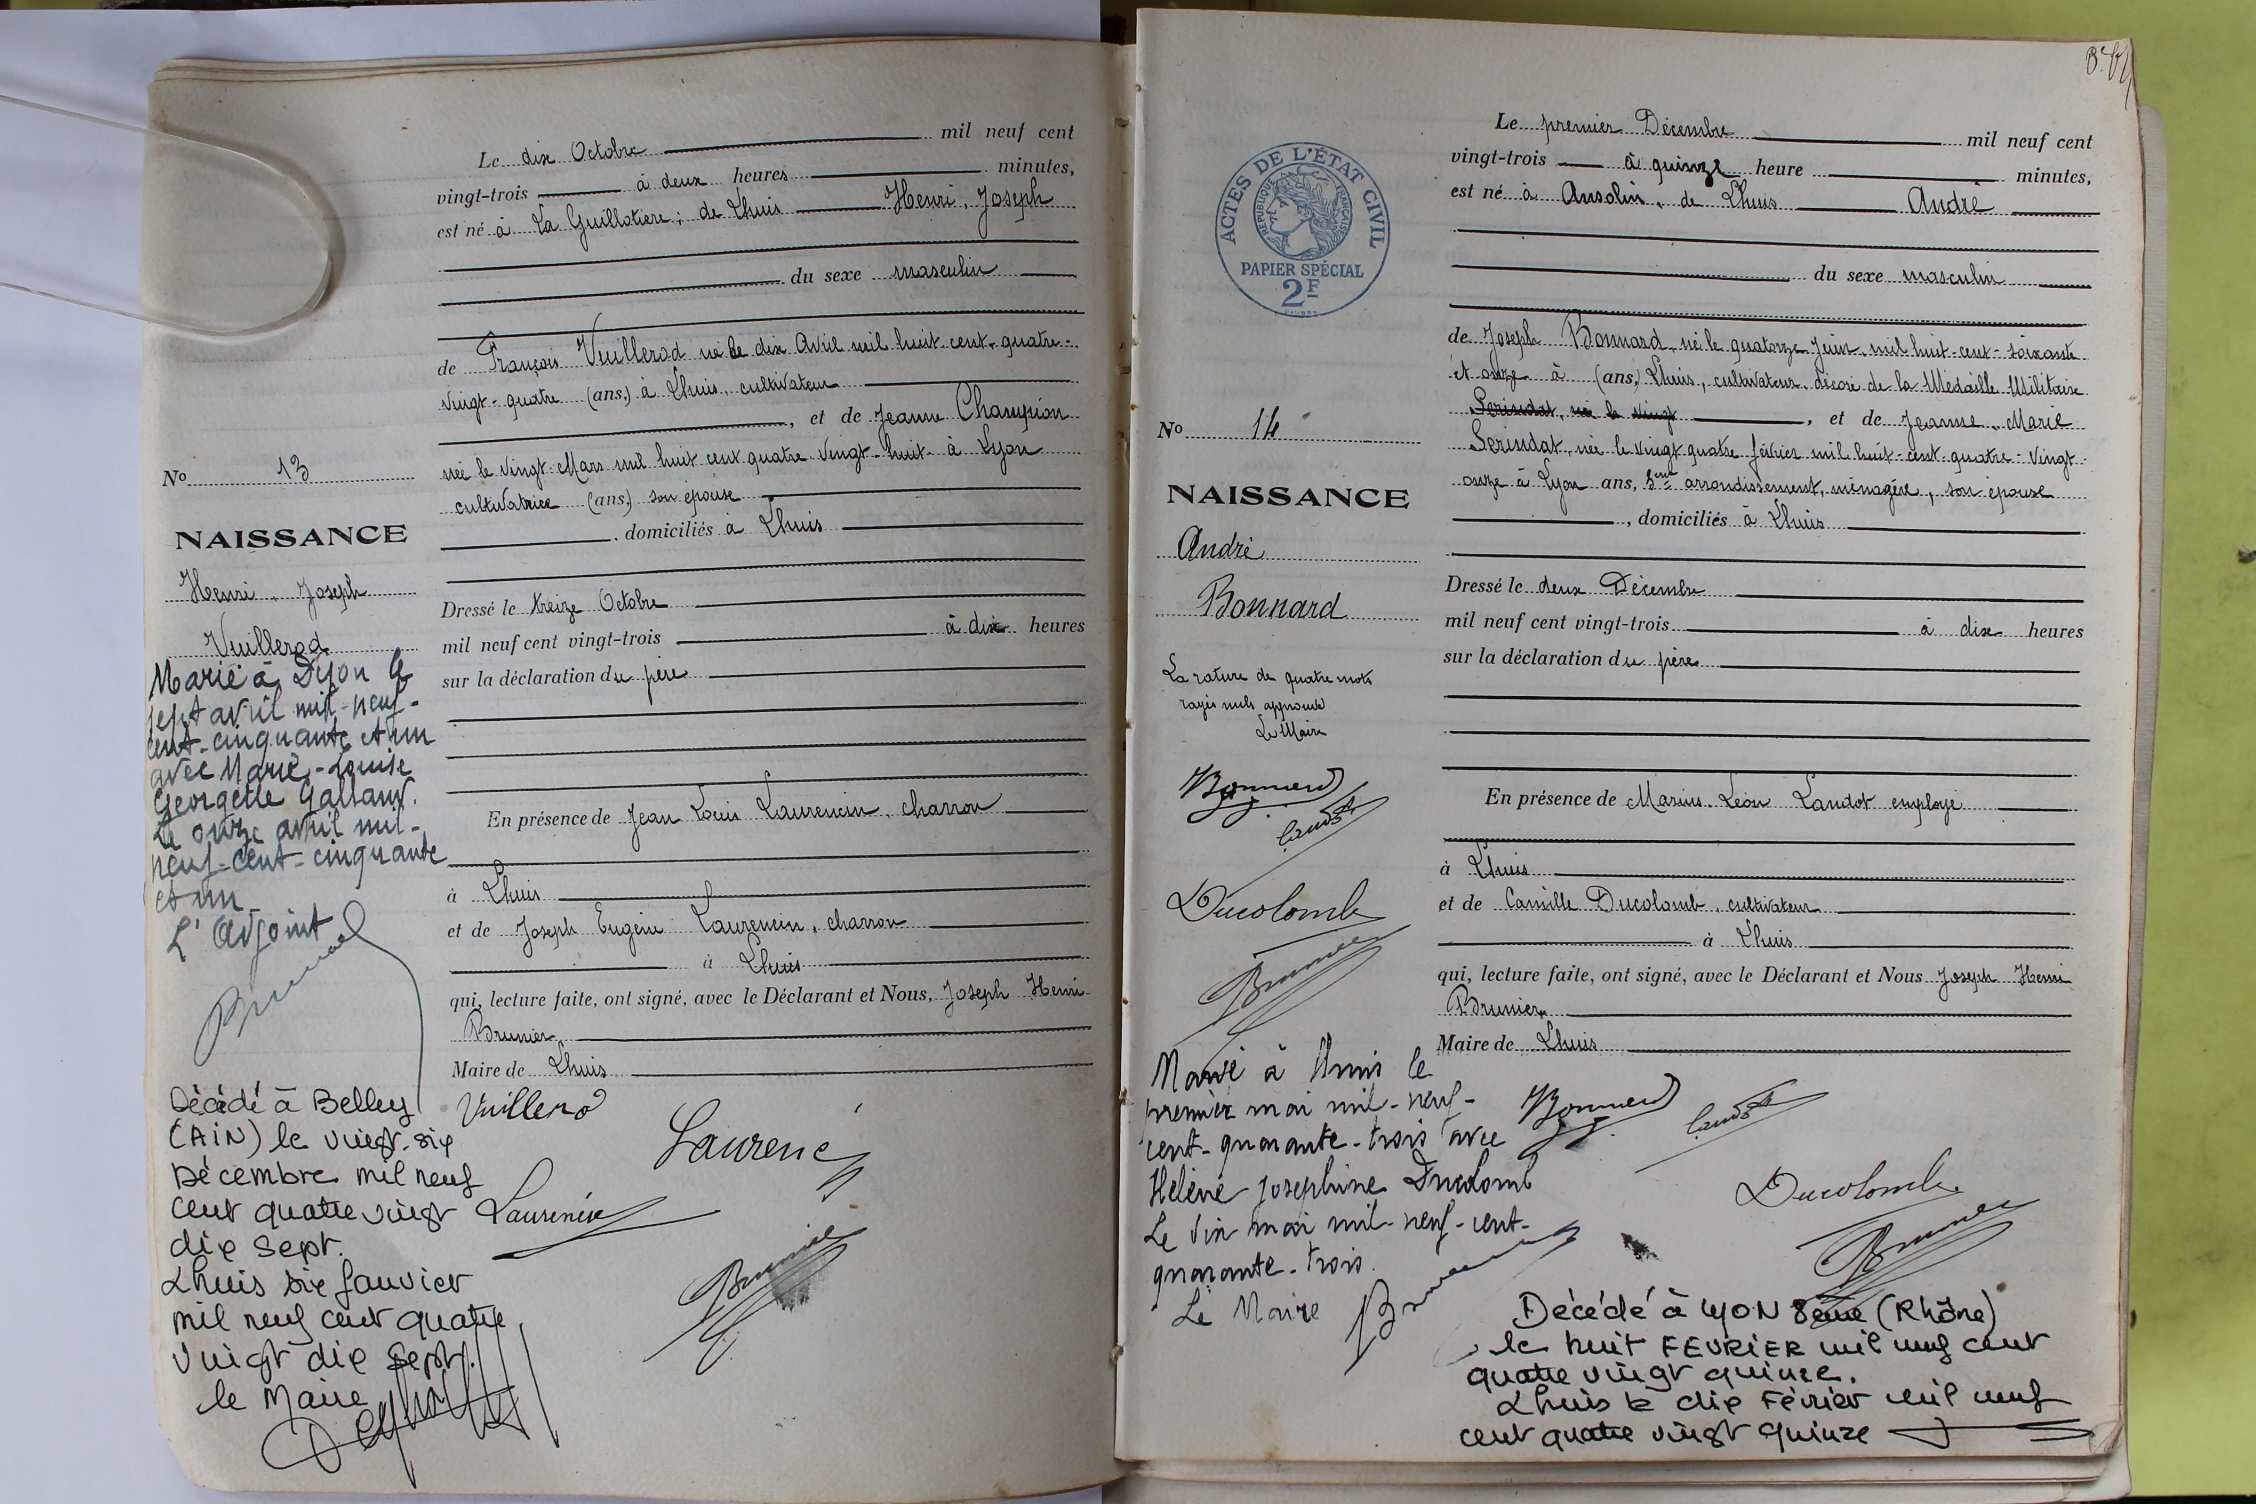 Le dix Octobre mil neuf cent
vingt-trois à deux heures minutes,
est né à La Guillotière ; de Lhuis Henri, Joseph
du sexe masculin
de François Vuillerod né le dix Avril mil huit-cent-quatre-
vingt-quatre (ans,) à Lhuis, cultivateur
, et de Jeanne Champion
née le vingt Mars mil huit cent quatre vingt-huit à Lyon
cultivatrice (ans,) son épouse
, domiciliés à Lhuis
Dressé le treize Octobre
mil neuf cent vingt-trois à dix heures
sur la déclaration du père
En présence de Jean Louis Laurencin, charron
à Lhuis
et de Joseph Eugène Laurencin, charron
à Lhuis
qui, lecture faite, ont signé, avec le Déclarant et Nous, Joseph Henri
Brunier
Maire de Lhuis
Vuillerod
Laurencin
Laurencin
Brunier
No 13
NAISSANCE
Henri, Joseph
Vuillerod
Marié à Dijon le
sept avril mil-neuf-
cent-cinquante et un
avec Marie-Louise
Georgette
Le onze avril mil-
neuf-cent-cinquante
et un
L'Adjoint
Décédé à Belley
(AIN) le vingt-six
Décembre mil neuf
cent quatre vingt
dix sept.
Lhuis six Janvier
mil neuf cent quatre
vingt dix sept.
le Maire
Le premier Décembre mil neuf cent
vingt-trois à quinze heure minutes,
est né à Ansolin, de Lhuis André
du sexe masculin
de Joseph Bonnard, né le quatorze Juin mil huit-cent-soixante
et onze à (ans,) Lhuis, cultivateur, décoré de la Médaille Militaire
Serindat, née le vingt , et de Jeanne, Marie
Serindat, née le vingt quatre février mil huit-cent-quatre-vingt
onze à Lyon ans, 5eme arrondissement, ménagère, son épouse
, domiciliés à Lhuis
Dressé le deux Décembre
mil neuf cent vingt-trois à dix heures
sur la déclaration du père
En présence de Marius Léon Landot employé
à Lhuis
et de Camille Ducolomb, cultivateur
à Lhuis
qui, lecture faite, ont signé, avec le Déclarant et Nous Joseph Henri
Brunier
Maire de Lhuis
Bonnard
Landot
Ducolomb
Brunier
Décédé à LYON 8ème (Rhône)
le huit FEVRIER mil neuf cent
quatre vingt quinze.
Lhuis le dix Février mil neuf
cent quatre vingt quinze
ACTES DE L'ÉTAT CIVIL
RÉPUBLIQUE FRANÇAISE
PAPIER SPÉCIAL
2F
No 14
NAISSANCE
André
Bonnard
La rature de quatre mots
rayés nuls approuvé
Le Maire
Bonnard
Landot
Ducolomb
Brunier
Marié à Lhuis le
premier mai mil-neuf-
cent-quarante-trois avec
Hélène Josephine Ducolomb
Le six mai mil-neuf-cent-
quarante-trois.
Le Maire
Brunier